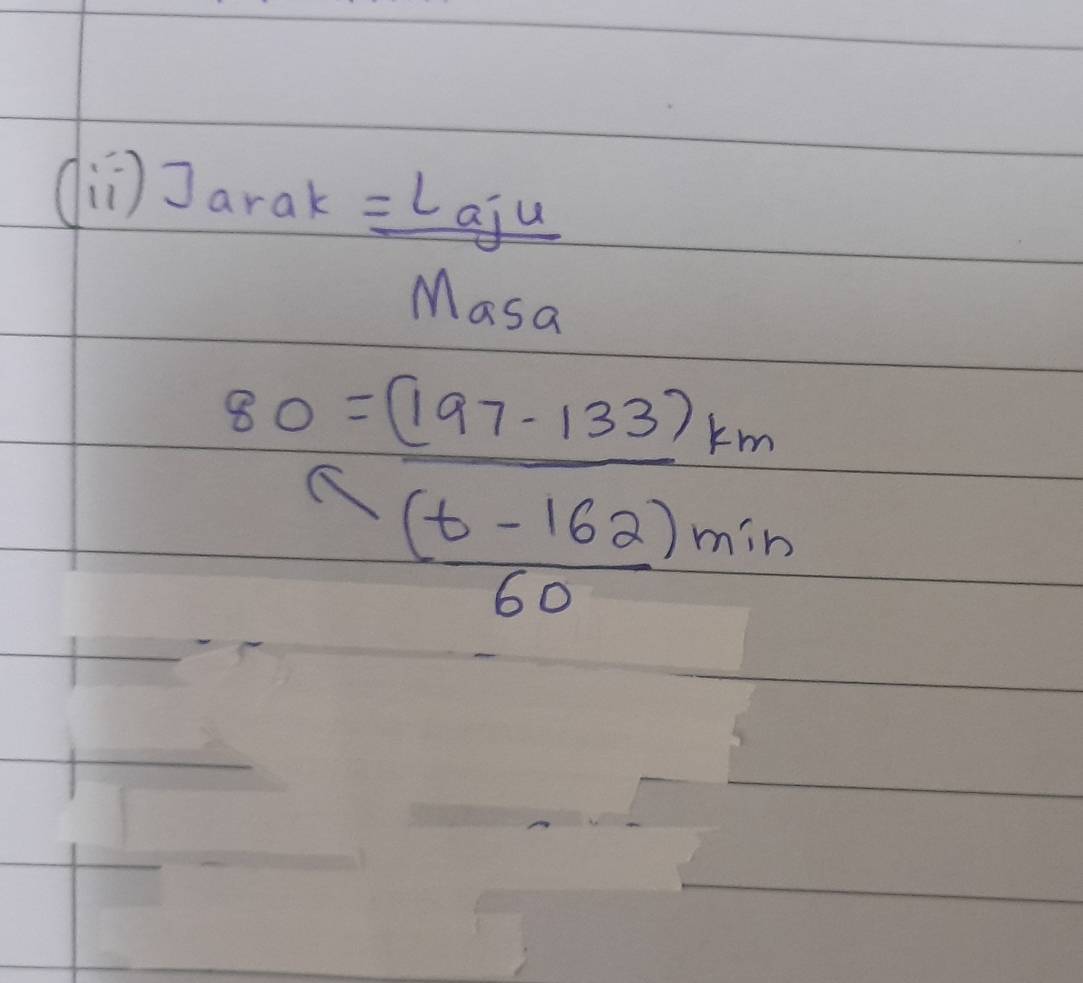 (ii) Jarak = Laju
Masa
80 = (197 - 133) km
(t - 162) min
60